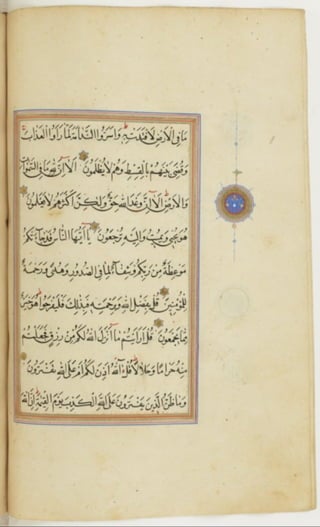 مَا فِي الْأَرْضِ لَافْتَدَتْ بِهِ وَأَسَرُّوا النَّدَامَةَ لَمَّا رَأَوُا الْعَذَابَ
وَقُضِيَ بَيْنَهُمْ بِالْقِسْطِ وَهُمْ لَا يُظْلَمُونَ أَلَا إِنَّ لِلَّهِ مَا فِي السَّمَوَاتِ
وَالْأَرْضِ أَلَا إِنَّ وَعْدَ اللَّهِ حَقٌّ وَلَكِنَّ أَكْثَرَهُمْ لَا يَعْلَمُونَ
هُوَ يُحْيِي وَيُمِيتُ وَإِلَيْهِ تُرْجَعُونَ يَا أَيُّهَا النَّاسُ قَدْ جَاءَتْكُمْ
مَوْعِظَةٌ مِنْ رَبِّكُمْ وَشِفَاءٌ لِمَا فِي الصُّدُورِ وَهُدًى وَرَحْمَةٌ
لِلْمُؤْمِنِينَ قُلْ بِفَضْلِ اللَّهِ وَبِرَحْمَتِهِ فَبِذَلِكَ فَلْيَفْرَحُوا هُوَ خَيْرٌ
مِمَّا يَجْمَعُونَ قُلْ أَرَأَيْتُمْ مَا أَنْزَلَ اللَّهُ لَكُمْ مِنْ رِزْقٍ فَجَعَلْتُمْ
مِنْهُ حَرَامًا وَحَلَالًا قُلْ آللَّهُ أَذِنَ لَكُمْ أَمْ عَلَى اللَّهِ تَفْتَرُونَ
وَمَا ظَنُّ الَّذِينَ يَفْتَرُونَ عَلَى اللَّهِ الْكَذِبَ يَوْمَ الْقِيمَةِ إِنَّ اللَّهَ